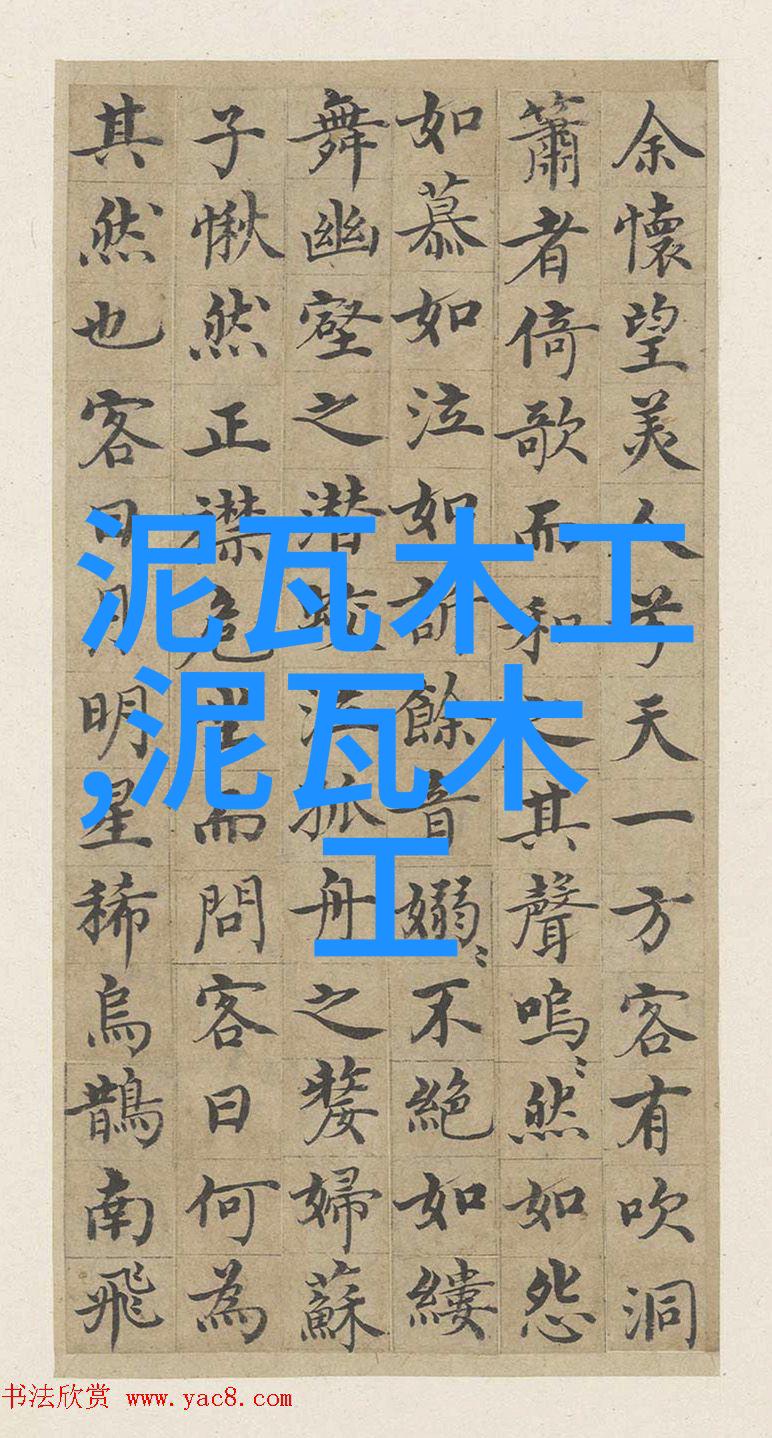 余懷望美人兮天一方客有吹洞
簫者倚歌而和之其聲嗚〻然如怨
如慕如泣如訴餘音嫋〻不絕如縷
舞幽壑之潜蛟泣孤舟之嫠婦蘇
子愀然正襟危坐而問客曰何為
其然也客曰月明星稀烏鵲南飛
泥瓦木工
,泥瓦木
工
书法欣赏 www.yac8.com